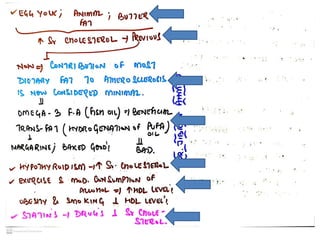 ✓ EGG YOLK ; ANIMAL ; BUTTER
FAT
↑ Sr CHOLESTEROL → PREVIOUS
NOW ⇒ CONTRIBUTION OF MOST
DIETARY FAT TO ATHEROSCLEROSIS
IS NOW CONSIDERED MINIMAL.
OMEGA-3 F.A (FISH OIL) → BENEFICIAL
TRANS-FAT (HYDROGENATION of PUFA)
OIL
MARGARINE; BAKED GOOD! BAD.
✓ HYPOTHYROIDISM → ↑ Sr. CHOLESTEROL
✓ EXERCISE & MOD. CONSUMPTION OF
ALCOHOL ⇒ ↑ HDL LEVEL!
OBESITY & SMOKING ↓ HDL LEVEL!
✓ STATINS → DRUGS ↓ Sr CHOLE-
STEROL.